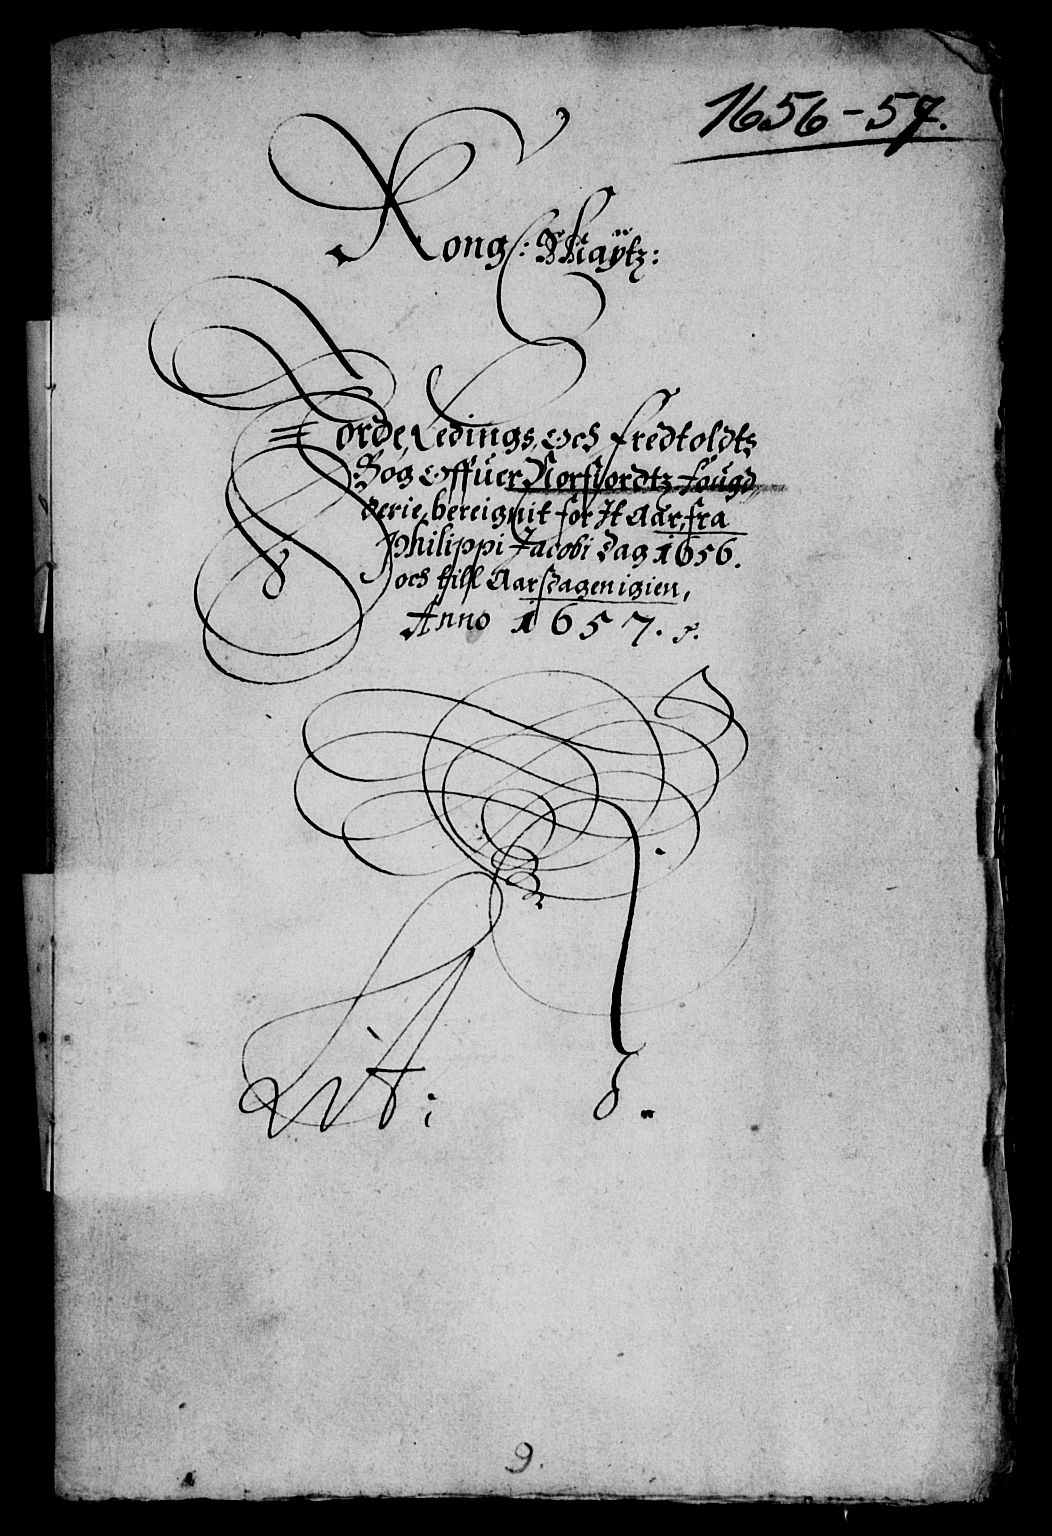 1656-57.
Kong: Maÿtz:
Jorde, Ledings, och fredtoldtz
Bog offuer Norfiordtz fougd,
derie, bereignit for It Aar, fra
Philippi Jacobi Dag 1656.
och till Aarsdagen igien,
Anno 1657.
Lit:
9.